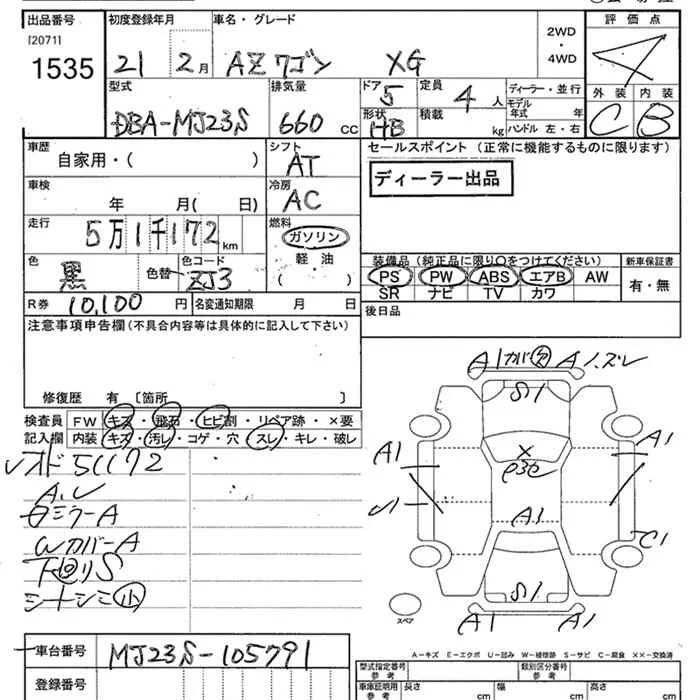 出品番号 初度登録年月 車名・グレード 評価点
[2071]
1535 21 2月 AZワゴン XG 2WD・4WD 4
型式 排気量 ドア 定員 ディーラー・並行 外装 内装
DBA-MJ23S 660cc 5 4人 モデル年式 年 C B
形状 HB 積載 kg ハンドル 左・右
車歴 シフト セールスポイント (正常に機能するものに限ります)
自家用・( ) AT
ディーラー出品
車検 冷房
年 月( 日) AC
走行 燃料
5万1千172km ガソリン
軽油
( )
色 色替 色コード 装備品(純正品に限り○をつけてください) 新車保証書
黒 ZJ3 PS PW ABS エアB AW 有・無
SR ナビ TV カワ
R券 10,100円 名変通知期限 月 日 後日品
注意事項申告欄(不具合内容等は具体的に記入して下さい)
修復歴 有 [箇所 ]
検査員 FW キズ・飛石・ヒビ割・リペア跡・×要
記入欄 内装 キズ・汚レ・コゲ・穴・スレ・キレ・破レ
51172
シートシミ小
A1 A1
S1
A1 A1
×
A1
S1
A1 A1
スペア
A-キズ E-エクボ U-凹み W-補修跡 S-サビ C-腐食 ××-交換済
車台番号 MJ23S-105791
登録番号
型式指定番号 参考 類別区分番号 参考
車庫証明用 参考 長さ cm 幅 cm 高さ cm